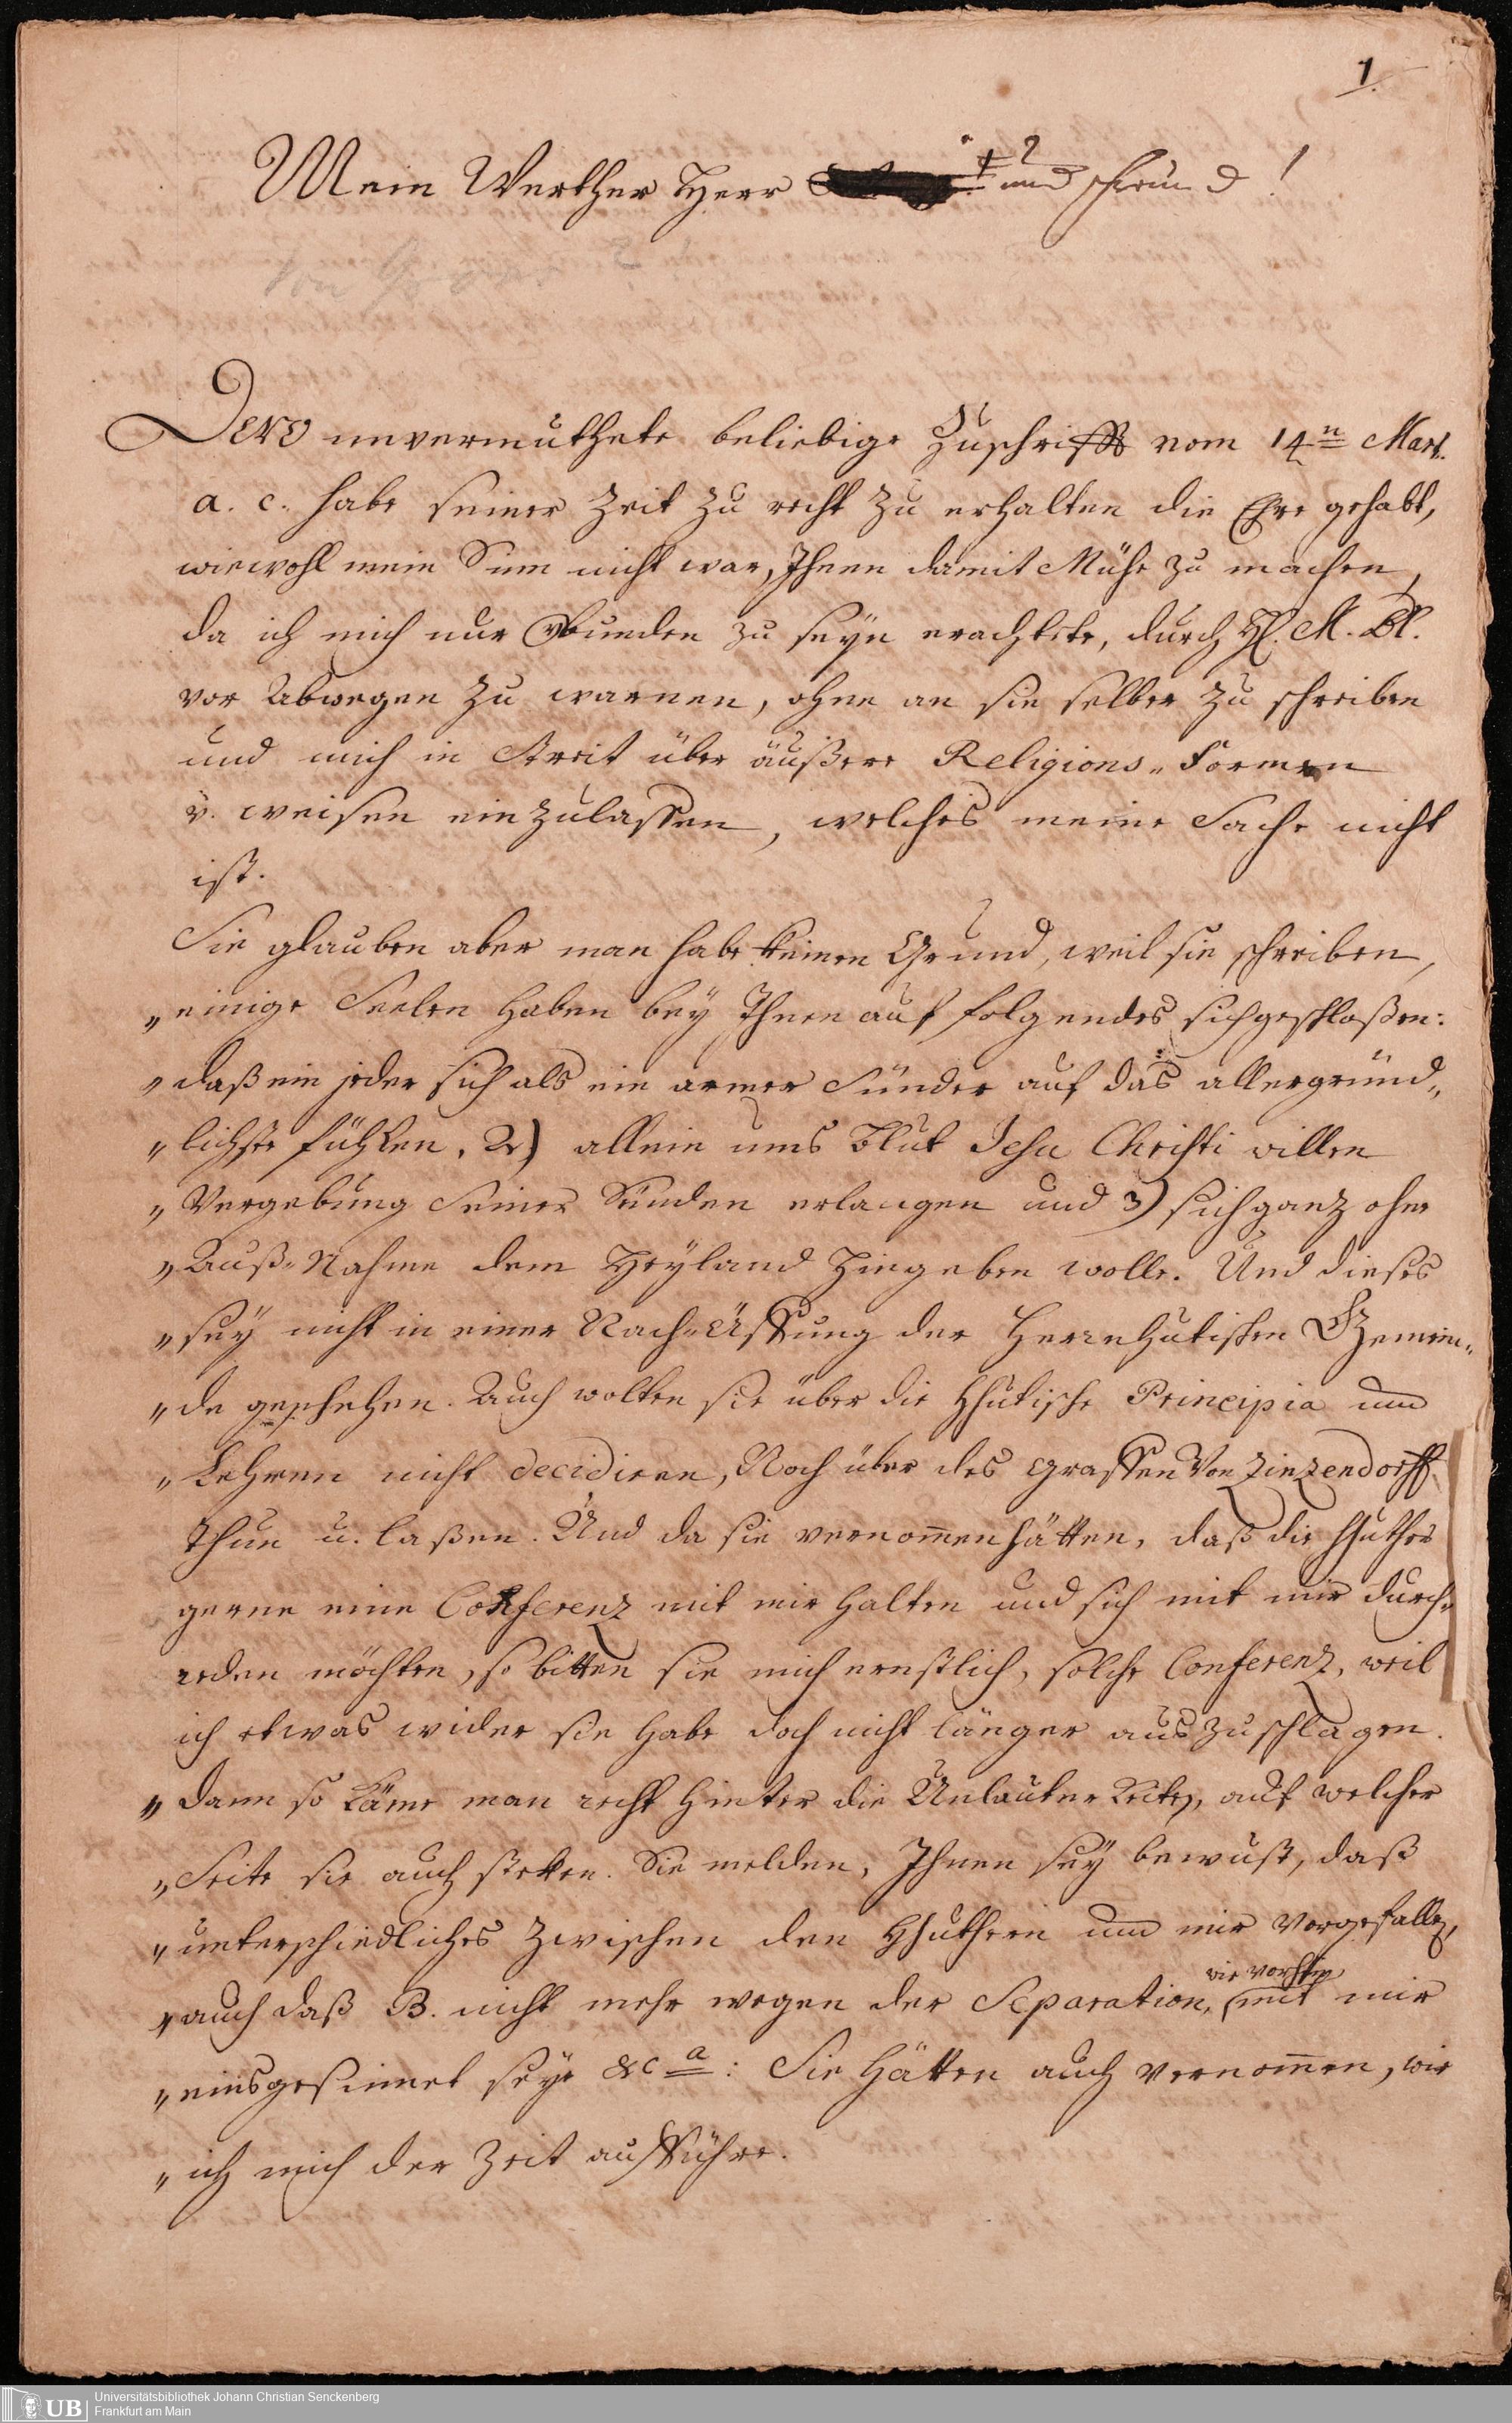 1.
Mein Werther Herr und Freund!
Dero unvermuthete beliebige Zuschrifft vom 14n Mart.
a. c. habe seiner Zeit zu recht zu erhalten die Ehre gehabt,
wiewohl mein Sinn nicht war, Ihnen damit Mühe zu machen,
da ich mich nur zu seyn erachtete, durch H. M. Bl.
vor Abwegen zu warnen, ohne an sie selber zu schreiben
und mich in Streit über äußere Religions-Formen
u. weisen einzulassen, welches meine Sache nicht
ist.
Sie glauben aber man habe keinen Grund, weil sie schreiben,
„einige Seelen haben bey Ihnen auf folgendes sich geschloßen:
„daß ein jeder sich als ein armer Sünder auf das allergründ„
„lichste fühlen, 2) allein ums Blut Jesu Christi willen
„Vergebung seiner Sünden erlangen und 3) sich ganz ohne
„Auß-Nahme dem Heyland hingeben wolle. Und dieses
„sey nicht in einer Nach-Äffung der Herrnhutischen Gemein„
„de geschehen. Auch wolten sie über die Hhutische Principia und
„Lehren nicht decidiren, Noch über des Graffen Von Zinzendorff
Thun u. laßen. Und da sie vernom̅en hätten, daß die Hhuther
gerne eine Conferenz mit mir halten und sich mit mir durch„
reden möchten, so bitten sie mich ernstlich, solche Conferenz, weil
ich etwas wider sie habe doch nicht länger auszuschlagen.
„Dann so käme man recht hinter die Unlauterkeit, auf welcher
„Seite sie auch steken. Sie melden, Ihnen sey bewust, daß
„unterschiedliches zwischen den Hhuthern und mir vorgefallen,
wie vorhin
„auch daß B. nicht mehr wegen der Separation, mit mir
„einsgesinnet seye &c a: Sie hätten auch vernom̅en, wie
„ich mich der Zeit aufführe.
UB Universitätsbibliothek Johann Christian Senckenberg
Frankfurt am Main